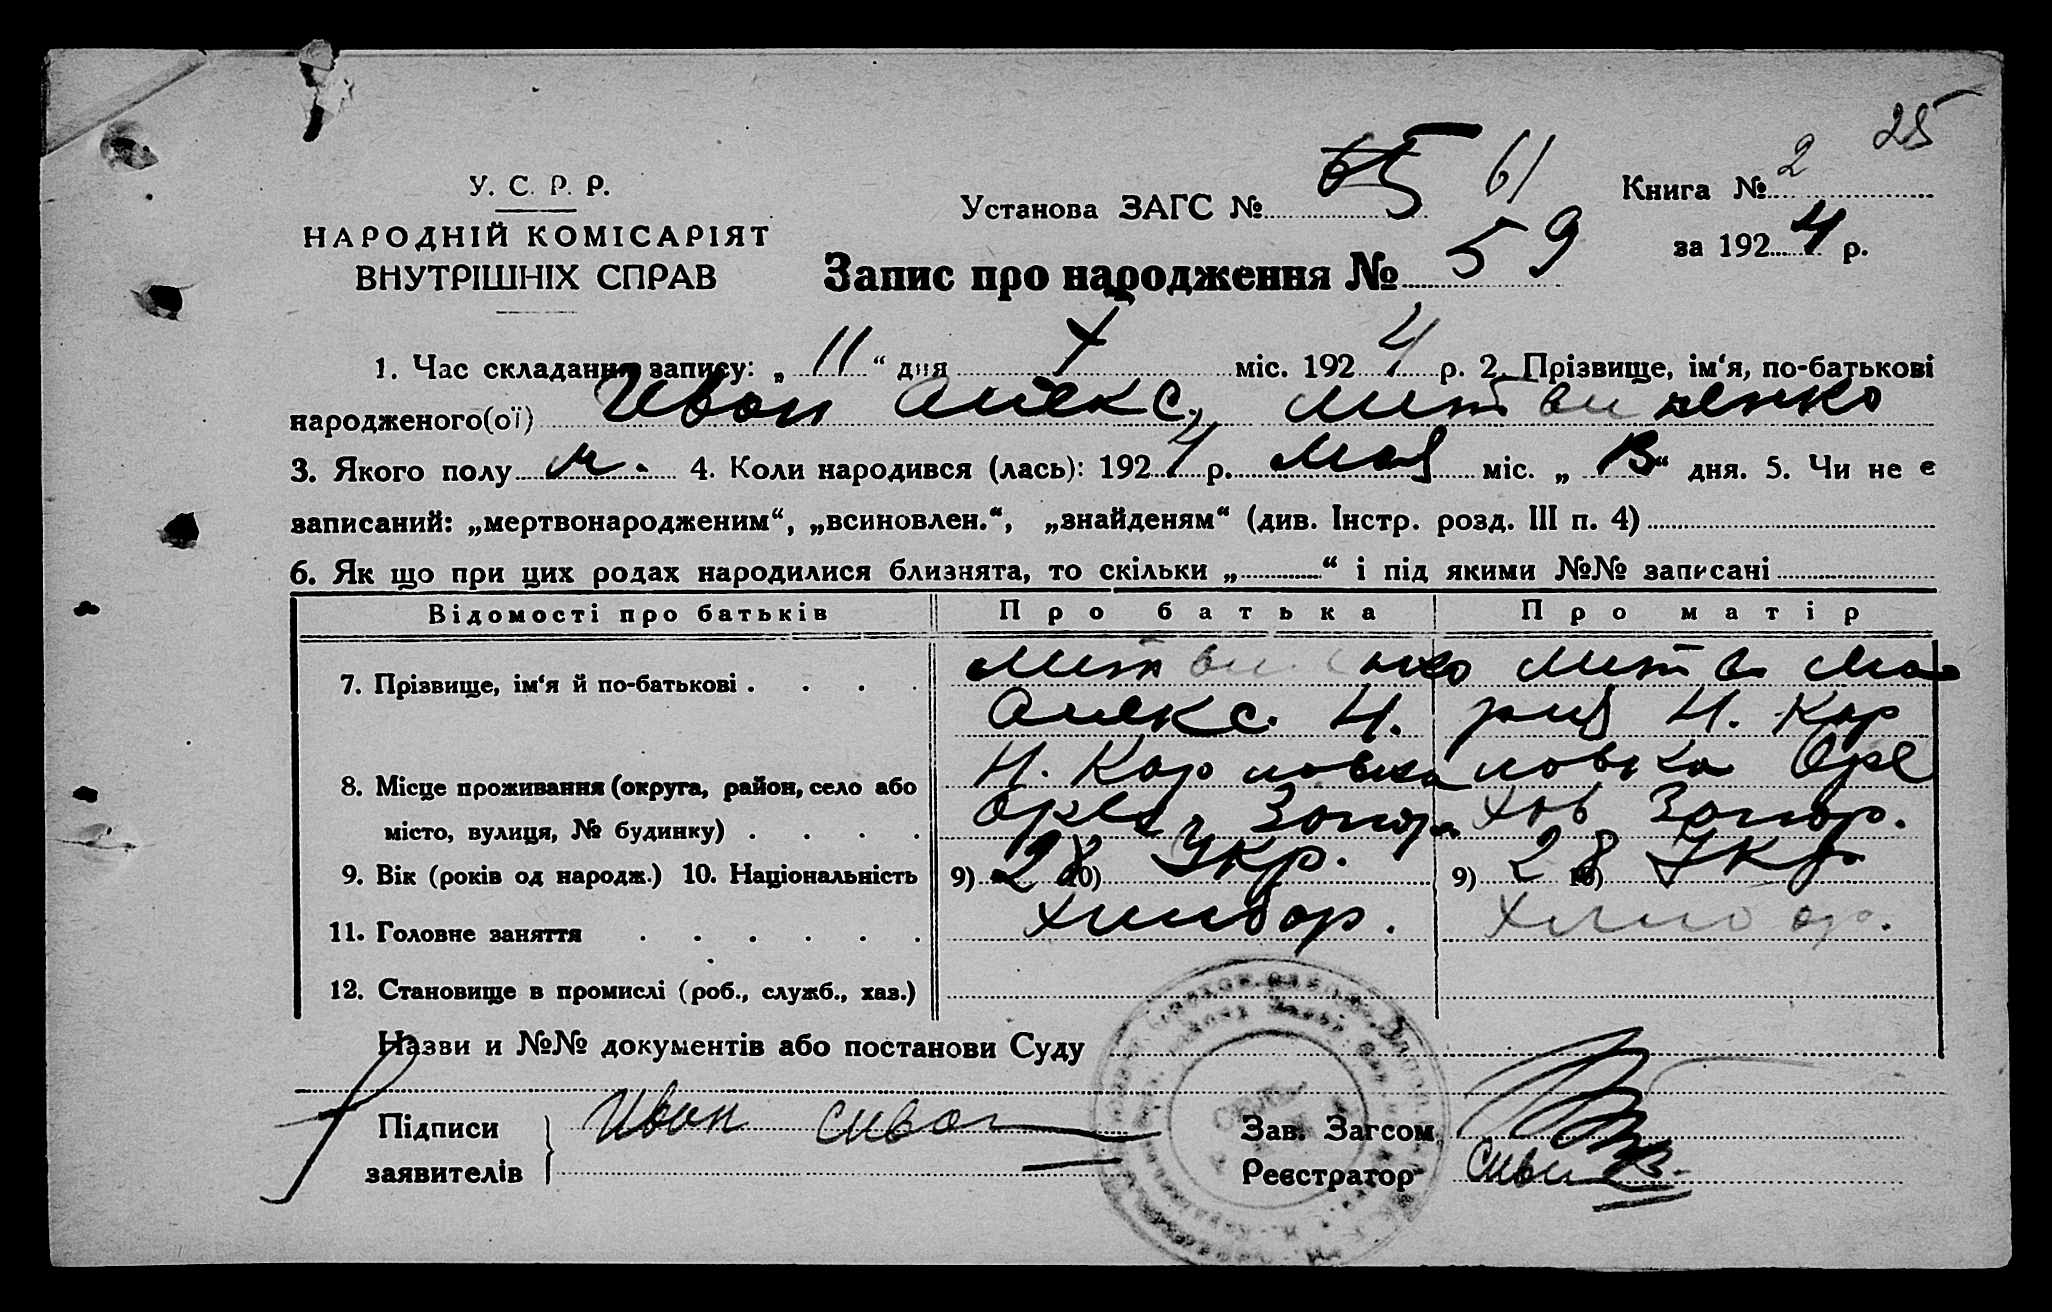 25
У. С. Р. Р.
НАРОДНІЙ КОМІСАРІЯТ
ВНУТРІШНІХ СПРАВ
Установа ЗАГС № 65 61
Книга № 2
за 1924 р.
Запис про народження № 59
1. Час складання запису: „ 11 “ дня X міс. 1924 р. 2. Прізвище, ім‘я, по-батькові
народженого(ої) Иван Алекс. Литвиненко
3. Якого полу м. 4. Коли народився (лась): 1924 р. мая міс. „ “ дня. 5. Чи не є
записаний: „мертвонародженим“, „всиновлен.“, „знайденям“ (див. Інстр. розд. III п. 4)
6. Як що при цих родах народилися близнята, то скільки „ “ і під якими №№ записані
Відомості про батьків Про батька Про матір
7. Прізвище, ім‘я й по-батькові Литвиненко Литв Ма
Алекс. Н. рия Н. Кар
Н. Карловка ловка Оре
8. Місце проживання (округа, район, село або
місто, вулиця, № будинку) Орех Запор хов Запор.
9. Вік (років од народж.) 10. Національність 9) 28 10) Укр. 9) 28 10) Укр.
11. Головне заняття хлибор. хлибор.
12. Становище в промислі (роб., служб., хаз.)
Назви и №№ документів або постанови Суду
Підписи
заявителів
Иван
Зав. Загсом
Реєстратор